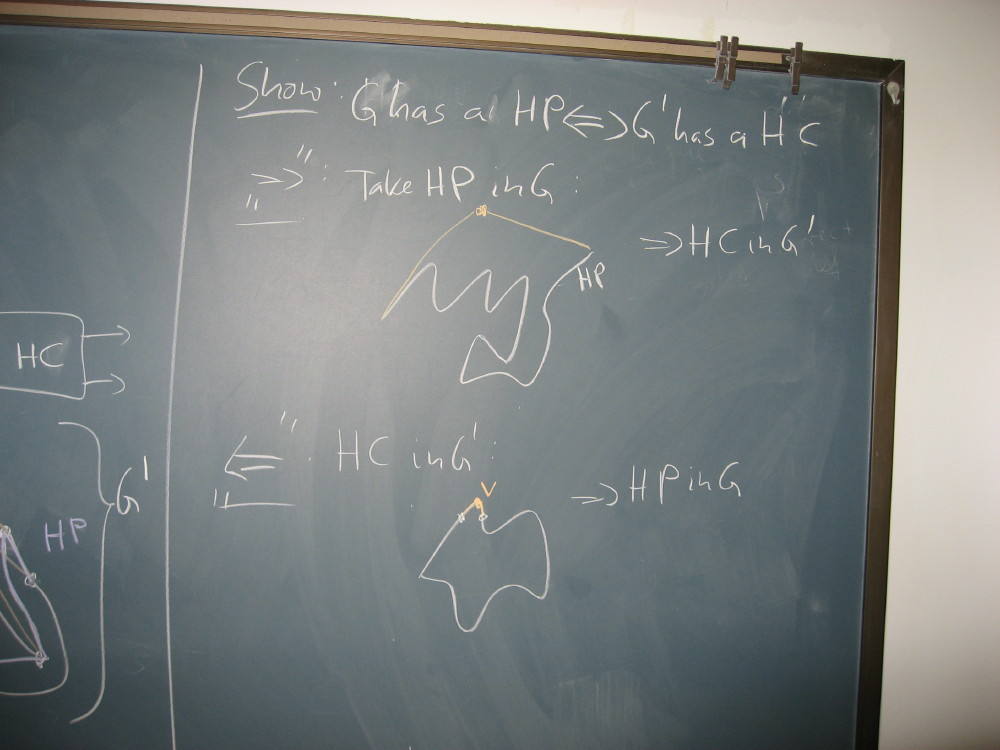 Show: G has a HP <=> G' has a HC
"=>": Take HP in G:
HP
=> HC in G'
"<=": HC in G':
V
=> HP in G
HC
G'
HP